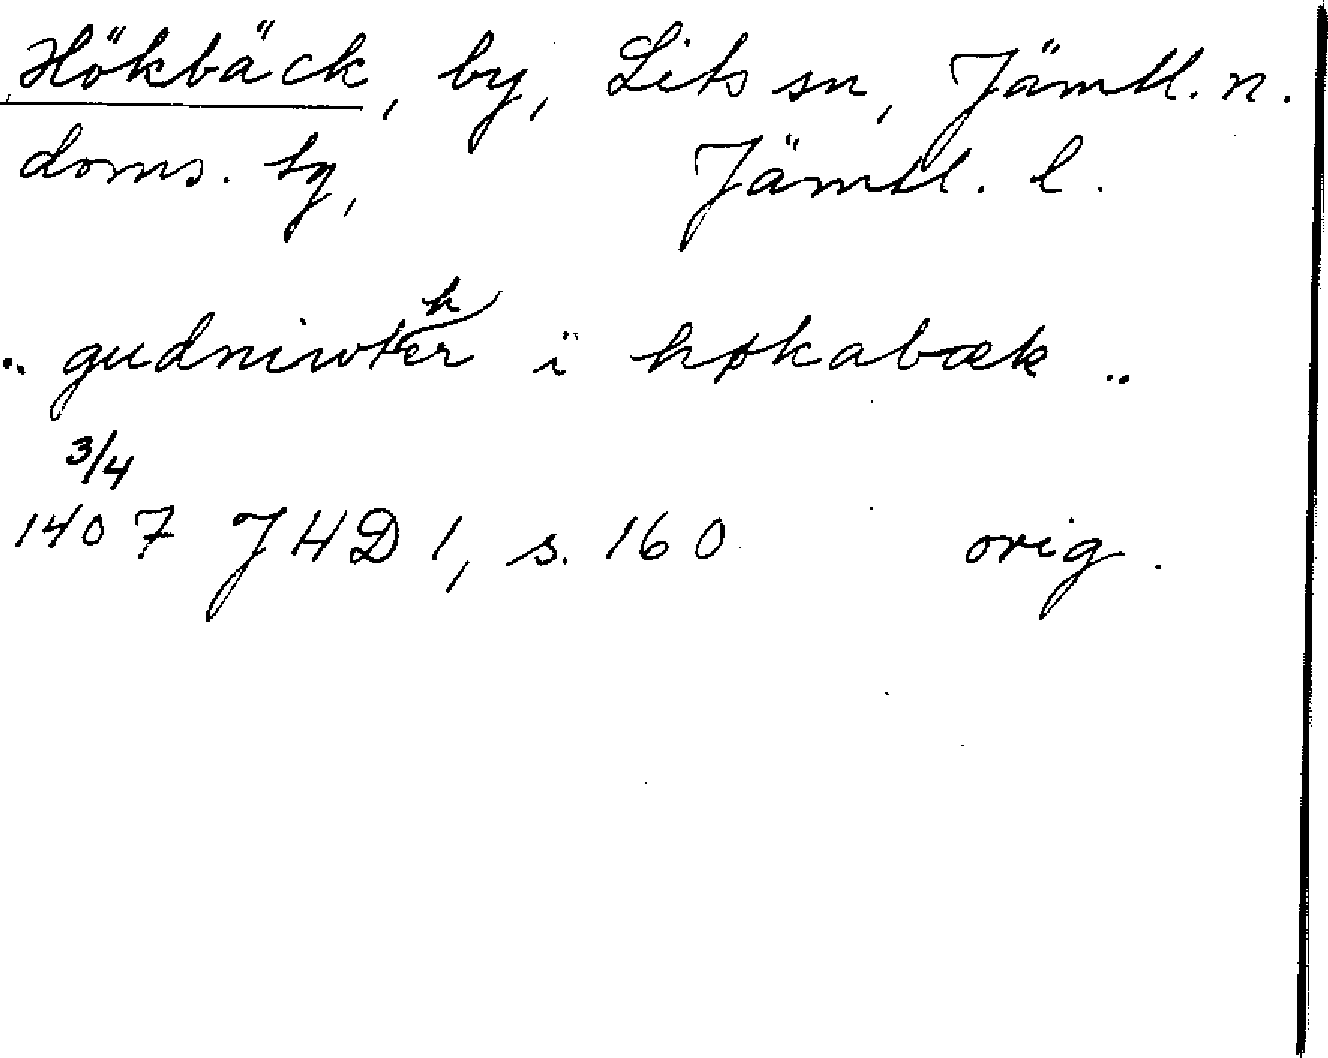 Hökbäck, by, Lits sn, Jämtl. n.
doms. sg, Jämtl. l.
.. gudniwter i høkabæk ..
3/4
1407 JHD 1, s. 160 orig.